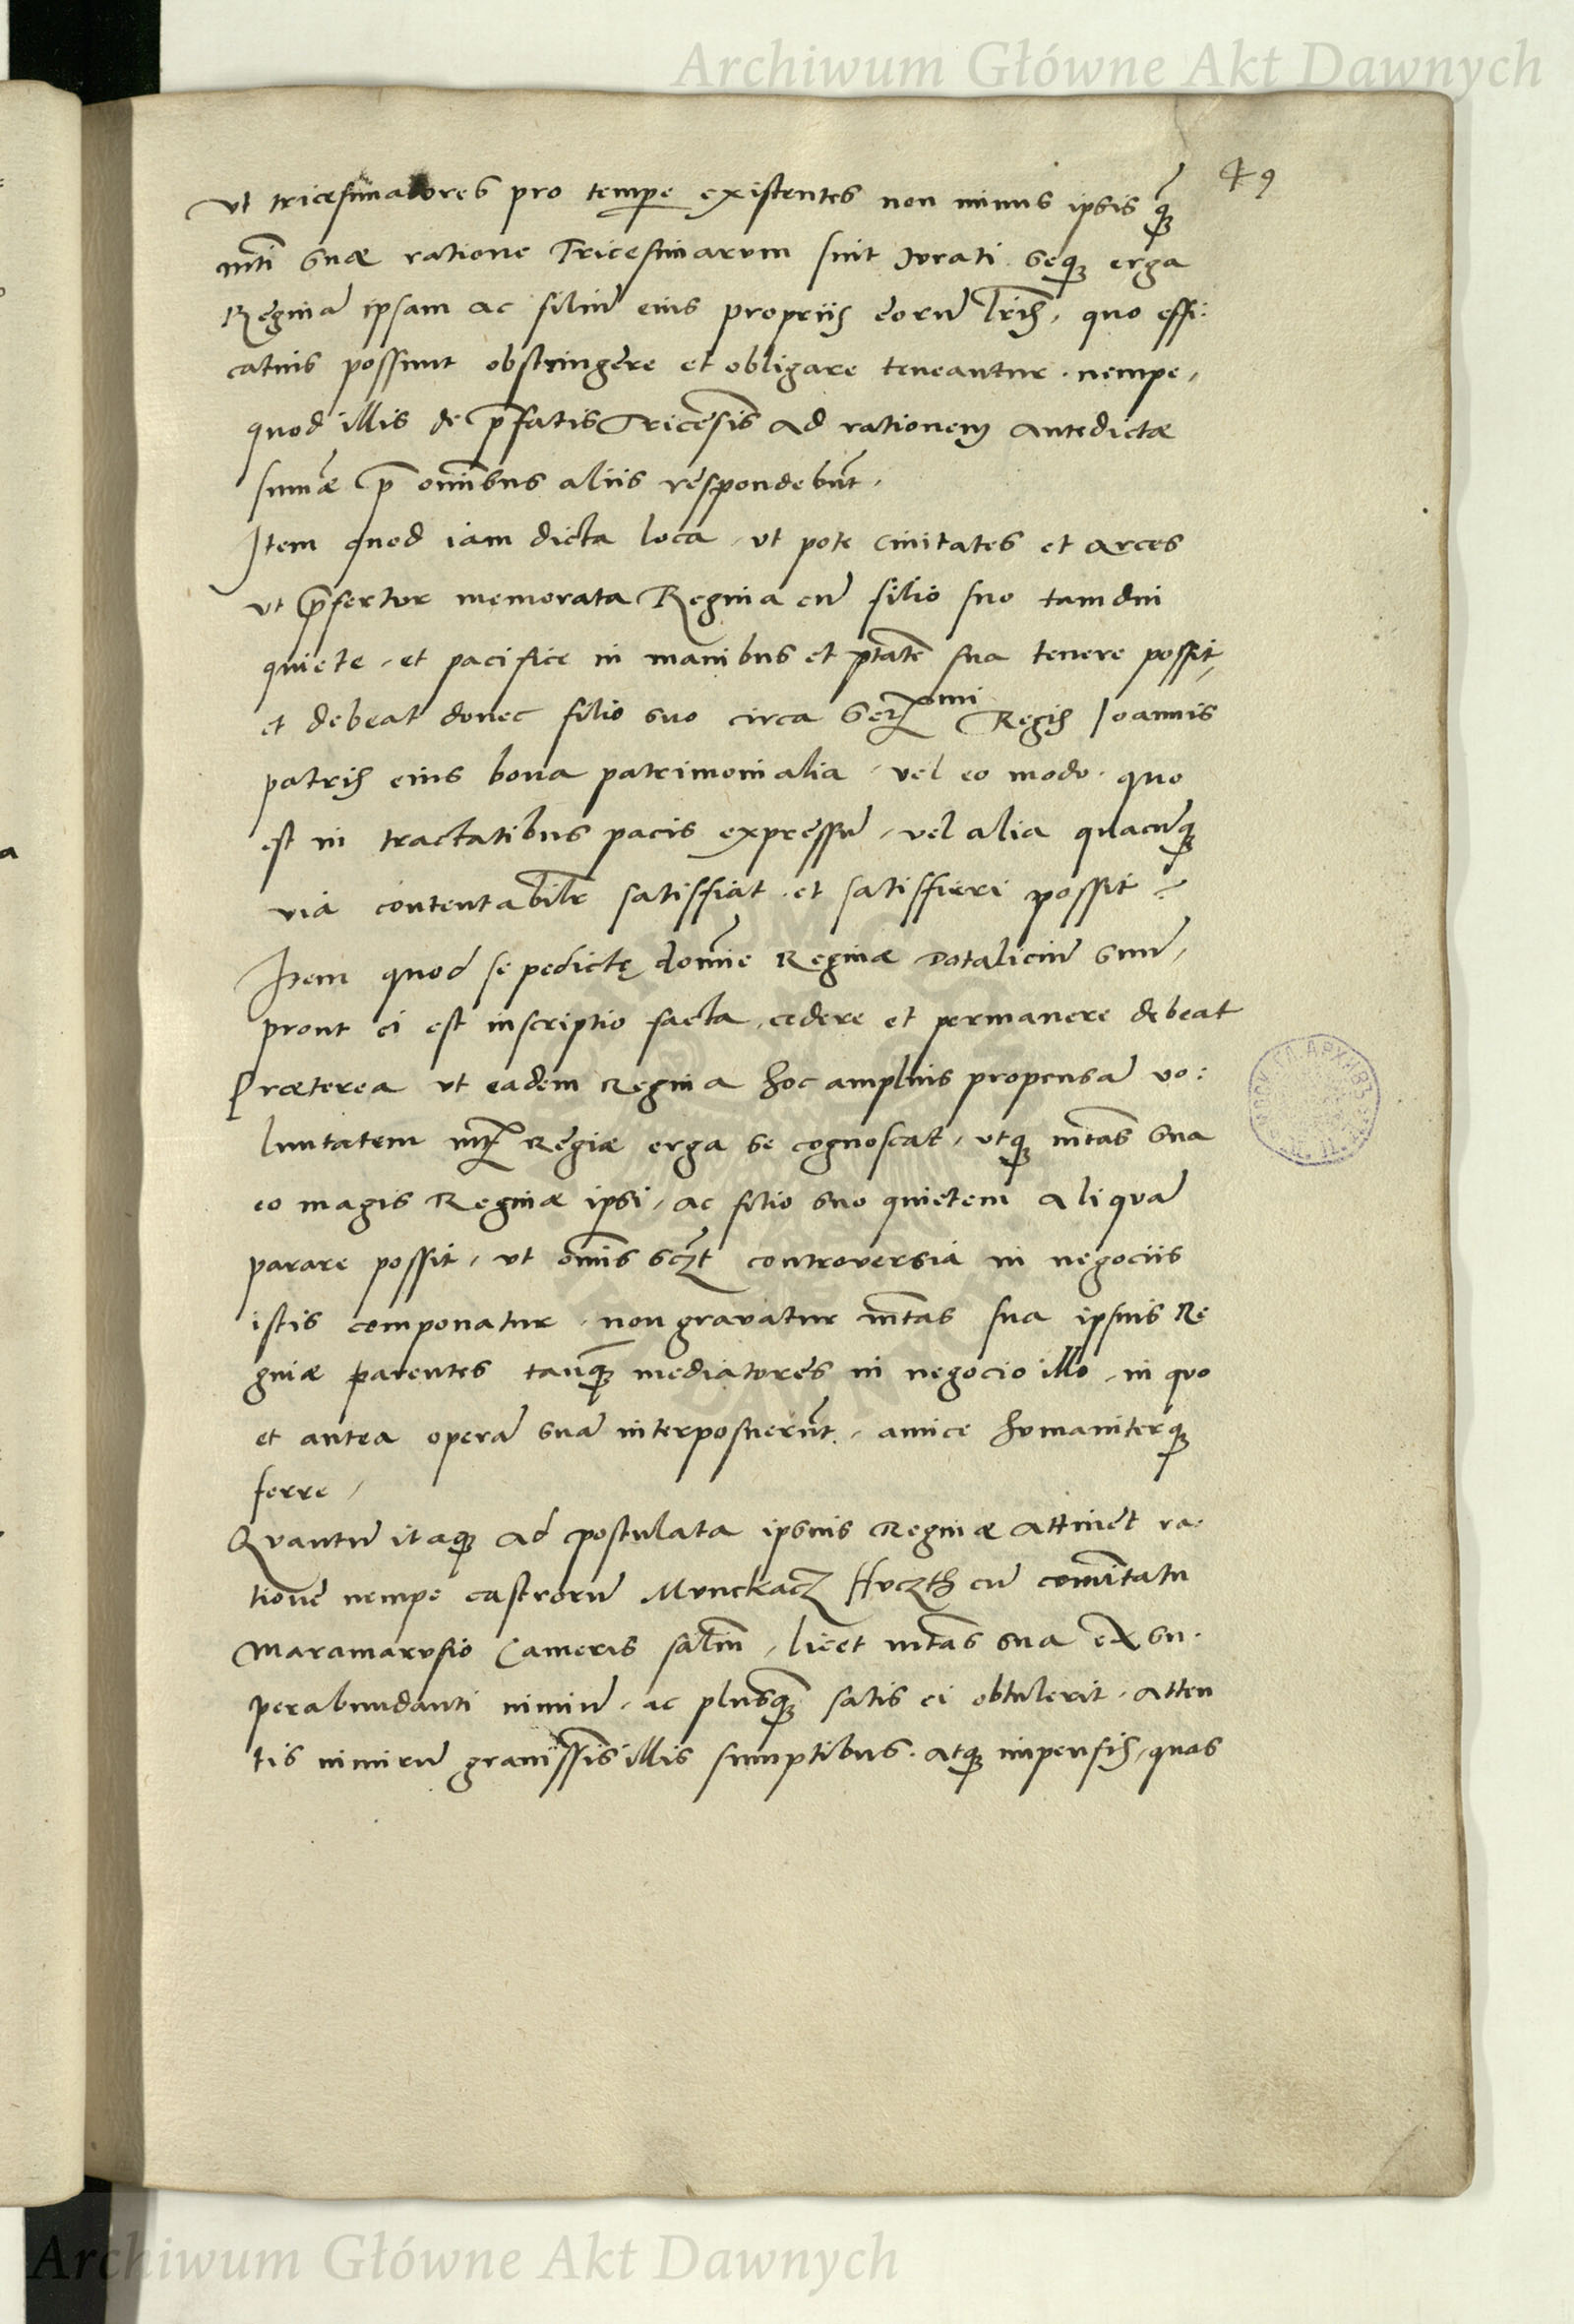 Archiwum Główne Akt Dawnych
49
Vt tricesimatores pro tempe existentes non minus ipsis q̃
mti suæ ratione Tricesimarum sint Jurati seq; erga
Reginã ipsam ac filiũ eius propriis eorũ lris, quo effi:
catius possunt obstringere et obligare teneantur . nempe,
quod illis de p̃fatis Tricesis ad rationem antedictæ
sum̃æ p̃ omibus aliis respondebũt.
Item quod iam dicta loca, vt pote ciuitates et arces
vt p̃fertur memorata Regina cũ filio suo tamdiu
quiete, et pacifice in manibus et ptãte sua tenere possit,
et debeat donec filio suo circa Sermi Regis Joannis
patris eius bona patrimonialia, vel eo modo, quo
est in tractatibus pacis expressũ, vel alia quacũq;
via contentabilr satisfiat, et satisfieri possit.
Item quod sepedictę dom̃e Reginæ Dotaliciũ suũ,
prout ei est inscriptio facta, cedere et permanere debeat
Præterea vt eadem Regina hoc amplius propensã vo:
luntatem mtis Regiæ erga se cognoscat, vtq; mtas sua
eo magis Reginæ ipsi, ac filio suo quietem aliquã
parare possit, vt om̃is sczt controversia in negociis
istis componatur, non gravatur mtas sua ipsius Re
ginæ parentes tanq̃ mediatores in negocio illo, in quo
et antea operã suã interposuerũt, amice humaniterq;
ferre,
Quantũ itaq; ad postulata ipsius Reginæ attinet ra:
tionẽ nempe castrorũ Munckacz Huczth cũ comitatu
Maramarusio Cameris saliũ, licet mtas sua ex su:
perabundanti nimiũ, ac plusq̃ satis ei obtulerit, atten
tis nimirũ grauissis illis sumptibus, atq; impensis, quas
Archiwum Główne Akt Dawnych